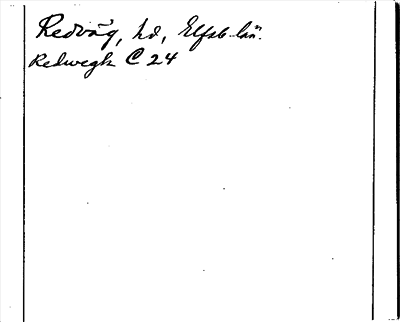 Redväg, hd, Elfsb. län.
Redwegh C 24